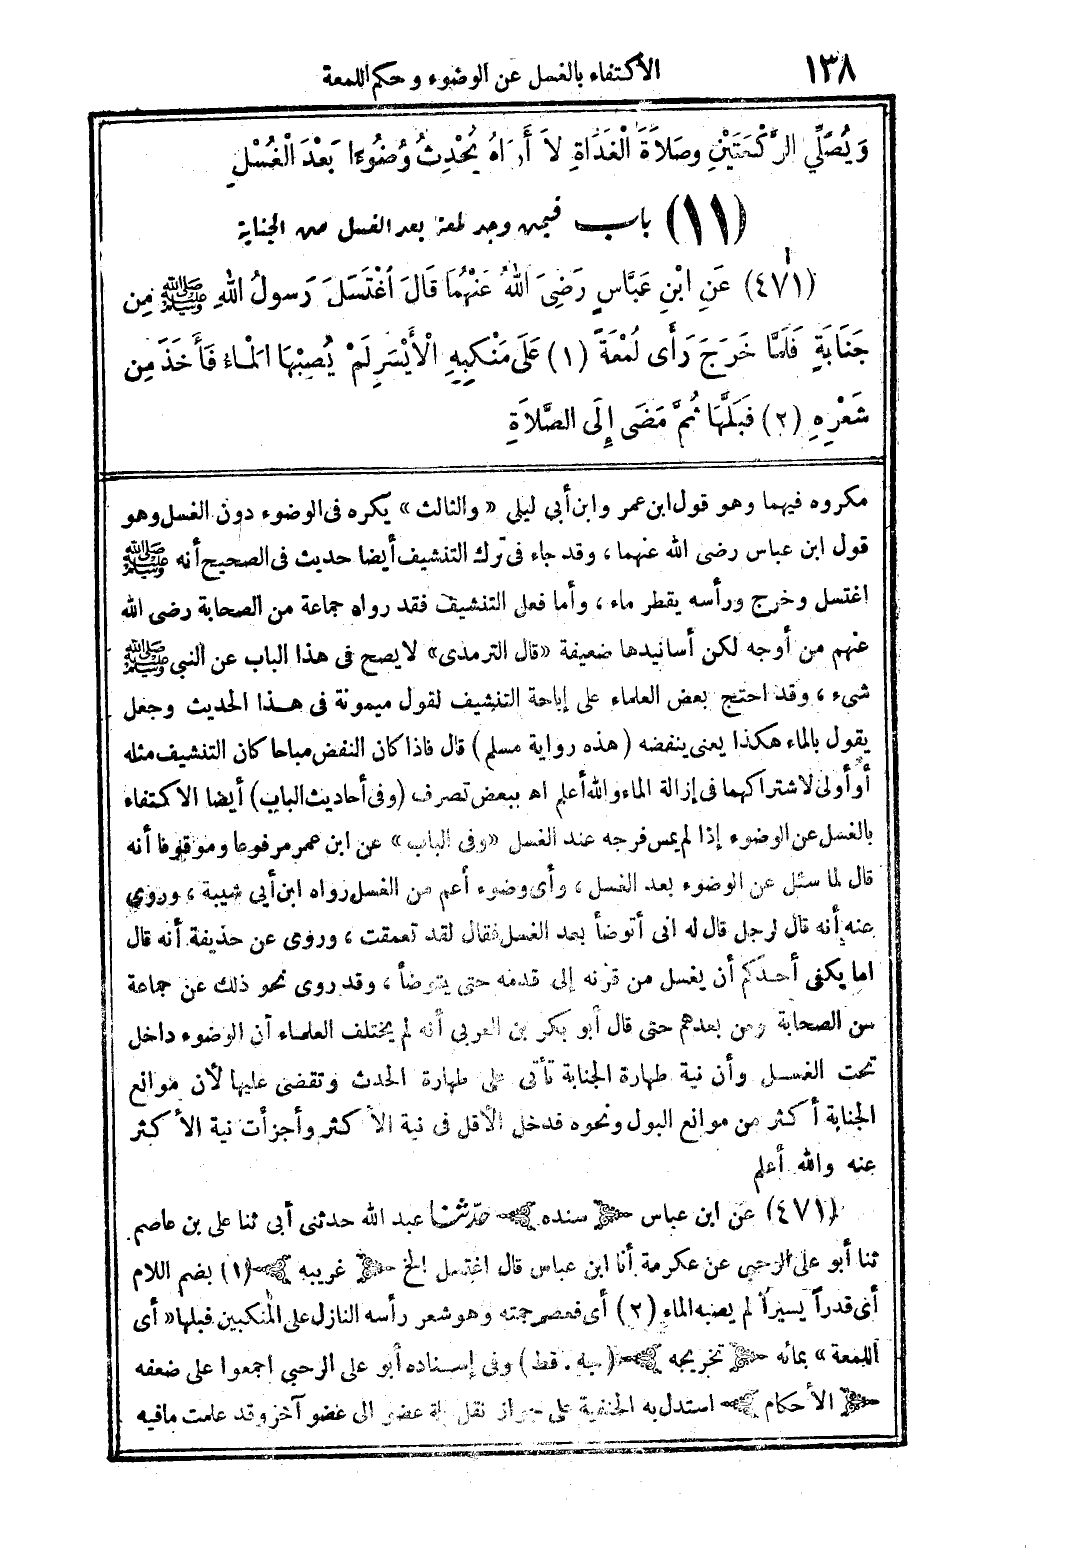 ١٣٨ الاكتفاء بالغسل عن الوضوء وحكم اللمعة
وَيُصَلِّي الرَّكْعَتَيْنِ وصَلاَةَ الْغَدَاةِ لاَ أَرَاهُ يُحْدِثُ وُضُوءًا بَعْدَ الْغُسْلِ
(١١) باب فيمن وجد لمعة بعد الغسل من الجنابة
(٤٧١) عَنِ ابْنِ عَبَّاسٍ رَضِىَ اللهُ عَنْهُمَا قَالَ اغْتَسَلَ رَسولُ اللهِ ﷺ مِن
جَنَابَةٍ فَلَمَّا خَرَجَ رَأَى لُمْعَةً (١) عَلَى مَنْكِبِهِ الْأَيْسَرِ لَمْ يُصِبْهَا الْمَاءُ فَأَخَذَ مِن
شَعْرِهِ (٢) فَبَلَّهَا ثُمَّ مَضَى إِلَى الصَّلاَةِ
مكروه فيهما وهو قول ابن عمر وابن أبي ليلي «والثالث» يكره فى الوضوء دون الغسل وهو
قول ابن عباس رضى الله عنهما ، وقد جاء فى ترك التنشيف أيضا حديث فى الصحيح أنه ﷺ
اغتسل وخرج ورأسه يقطر ماء ، وأما فعل التنشيف فقد رواه جماعة من الصحابة رضى الله
عنهم من أوجه لكن أسانيدها ضعيفة «قال الترمذى» لا يصح فى هذا الباب عن النبي ﷺ
شىء ، وقد احتج بعض العلماء على إباحة التنشيف لقول ميمونة فى هذا الحديث وجعل
يقول بالماء هكذا يعنى ينفضه (هذه رواية مسلم) قال فاذا كان النفض مباحا كان التنشيف مثله
أو أولى لاشتراكهما فى إزالة الماء والله أعلم اه ببعض تصرف (وفى أحاديث الباب) أيضا الاكتفاء
بالغسل عن الوضوء إذا لم يمس فرجه عند الغسل «وفى الباب» عن ابن عمر مرفوعا وموقوفا أنه
قال لما سئل عن الوضوء بعد الغسل ، وأى وضوء أعم من الغسل رواه ابن أبي شيبة ، وروي
عنه أنه قال لرجل قال له انى أتوضأ بعد الغسل فقال لقد تعمقت ، وروى عن حذيفة أنه قال
اما يكفى أحدكم أن يغسل من قرنه إلى قدمه حتى يتوضأ ، وقد روى نحو ذلك عن جماعة
من الصحابة ومن بعدهم حتى قال أبو بكر بن العربي أنه لم يختلف العلماء أن الوضوء داخل
تحت الغسل وأن نية طهارة الجنابة تأتى على طهارة الحدث وتقضى عليها لأن موانع
الجنابة أكثر من موانع البول ونحوه فدخل الأقل فى نية الأكثر وأجزأت نية الأكثر
عنه والله أعلم
(٤٧١) عن ابن عباس سنده حدّثنا عبد الله حدثنى أبى ثنا على بن عاصم
ثنا أبو على الرحبى عن عكرمة أنا ابن عباس قال اغتسل الخ غريبه (١) بضم اللام
أى قدراً يسيراً لم يصبه الماء (٢) أى فعصر جمته وهو شعر رأسه النازل على المنكبين فبلها «أى
اللمعة» بمائه تخريجه (جه . قط) وفى إسناده أبو على الرحبى اجمعوا على ضعفه
الأحكام استدل به الحنفية على جواز نقل بلة عضو الى عضو آخر وقد علمت ما فيه